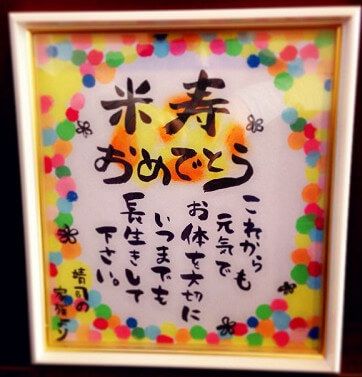 米寿
おめでとう
これからも
元気で
お体を大切に
いつまでも
長生きして
下さい。
靖司の
家族より